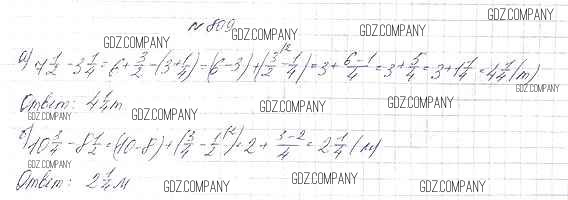 № 809
GDZ.COMPANY GDZ.COMPANY GDZ.COMPANY GDZ.COMPANY
а) 7 1/2 - 3 1/4 = 6 + 3/2 - (3 + 1/4) = (6 - 3) + (3/2 /2 - 1/4) = 3 + (6-1)/4 = 3 + 5/4 = 3 + 1 1/4 = 4 1/4 (т)
GDZ.COMPANY
Ответ: 4 1/4 т
GDZ.COMPANY GDZ.COMPANY GDZ.COMPANY GDZ.COMPANY
б) 10 3/4 - 8 1/2 = (10 - 8) + (3/4 - 1/2 /2) = 2 + (3-2)/4 = 2 1/4 (м)
GDZ.COMPANY
Ответ: 2 1/4 м
GDZ.COMPANY GDZ.COMPANY GDZ.COMPANY